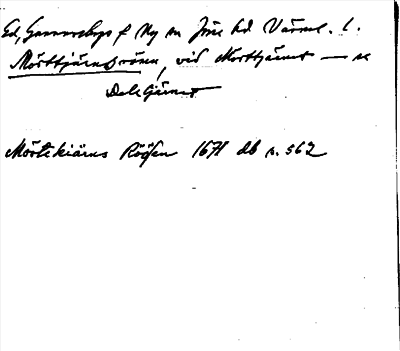 Ed, Gunnarskogs f Ny sn Jösse hd Värml. l.
Mörttjärnsrösen, vid Morttjärnet — se
Deletjärnet
Mörtekiärns Röösen 1671 db s. 562